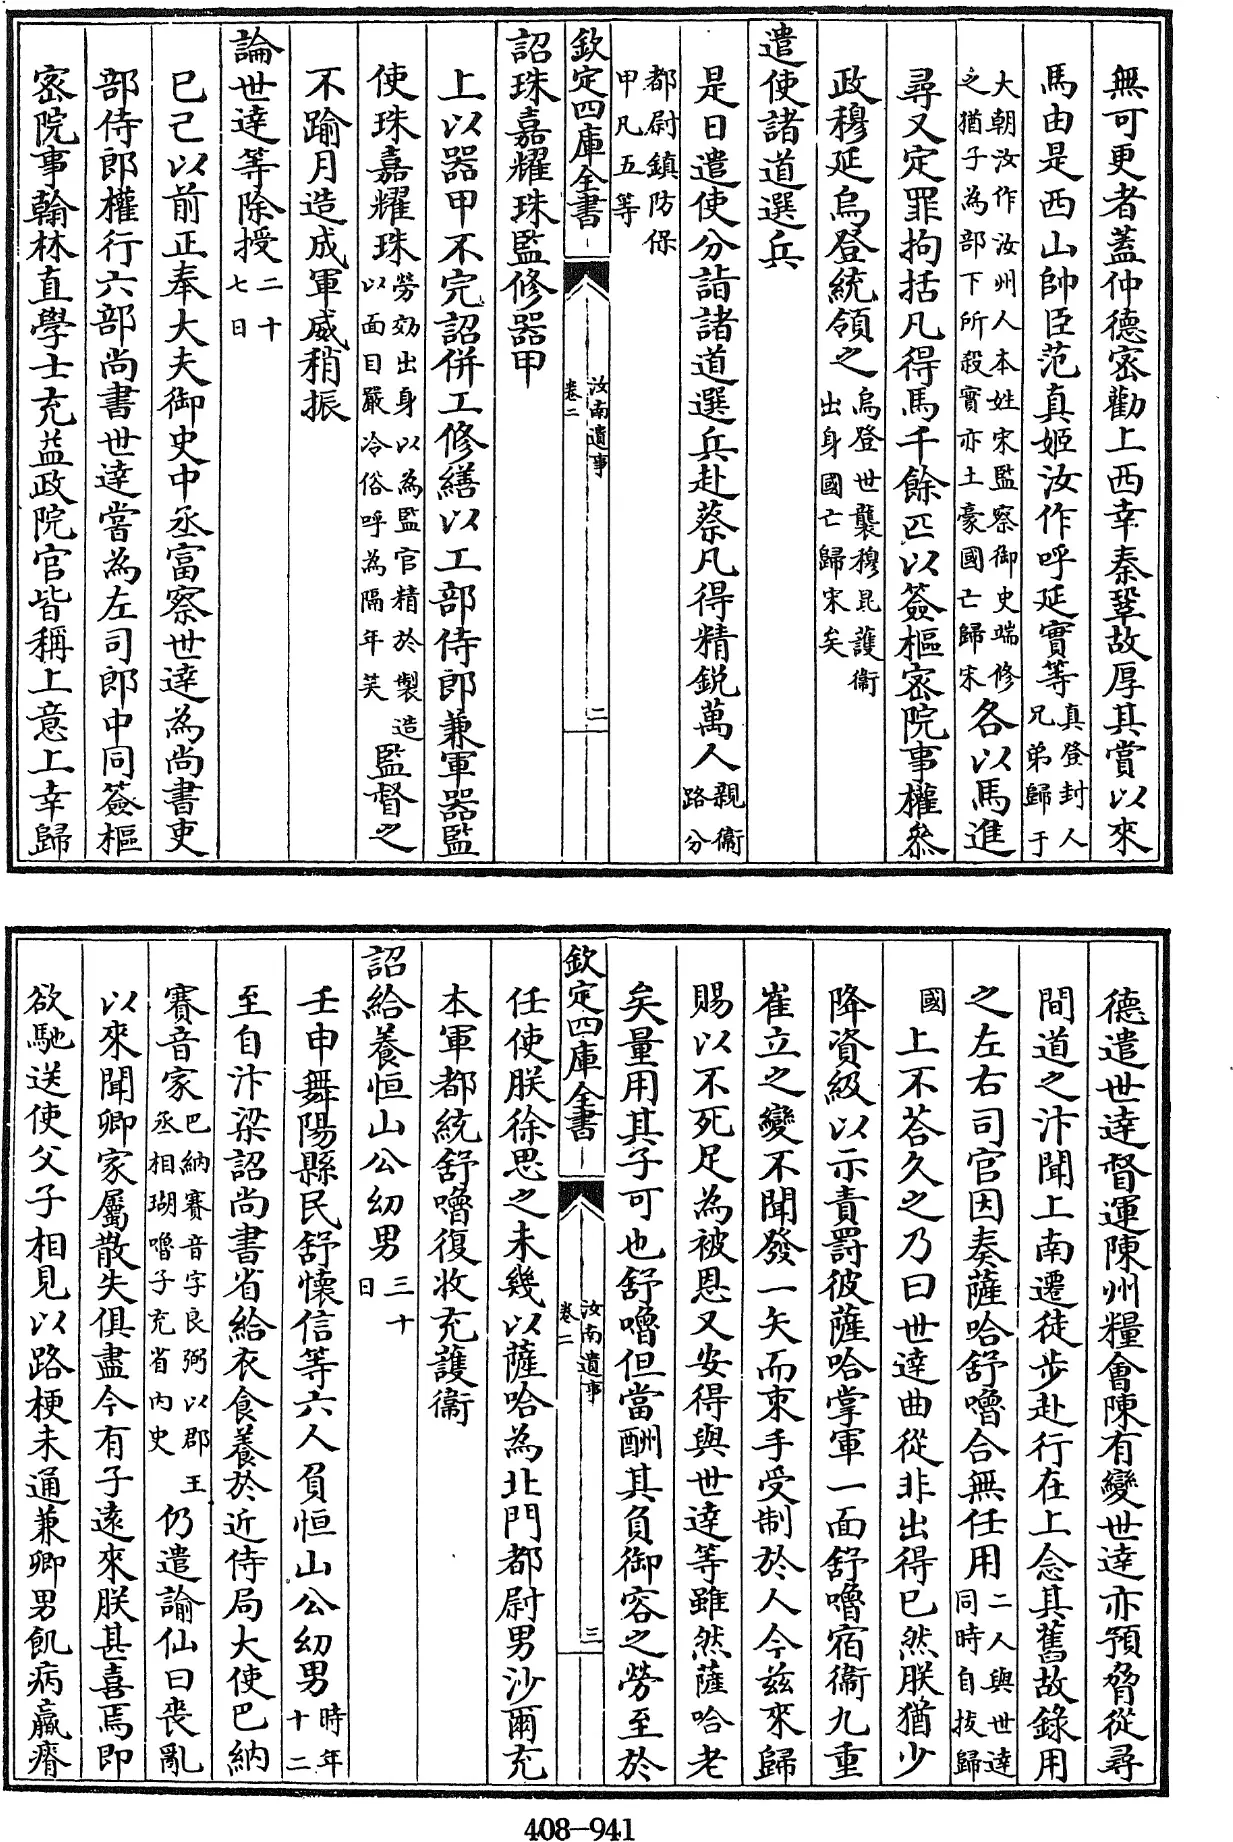 無可更者蓋仲德密勸上西幸秦鞏故厚其賞以來
馬由是西山帥臣范真姬汝作呼延實等真登封人兄弟歸于
大朝汝作汝州人本姓宋監察御史端修之猶子為部下所殺實亦土豪國亡歸宋各以馬進
尋又定罪拘括凡得馬千餘匹以簽樞密院事權叅
政穆延烏登統領之烏登世襲穆昆護衞出身國亡歸宋矣
遣使諸道選兵
是日遣使分詣諸道選兵赴蔡凡得精銳萬人親衞路分
都尉鎮防保甲凡五等
欽定四庫全書
汝南遺事
卷二
二
詔珠嘉耀珠監修器甲
上以器甲不完詔併工修繕以工部侍郎兼軍器監
使珠嘉耀珠勞効出身以為監官精於製造以面目嚴冷俗呼為隔年笑監督之
不踰月造成軍威稍振
論世達等除授二十七日
己巳以前正奉大夫御史中丞富察世達為尚書吏
部侍郎權行六部尚書世達嘗為左司郎中同簽樞
密院事翰林直學士充益政院官皆稱上意上幸歸
德遣世達督運陳州糧會陳有變世達亦預脅從尋
間道之汴聞上南遷徒步赴行在上念其舊故錄用
之左右司官因奏薩哈舒嚕合無任用二人與世達同時自拔歸
國上不荅久之乃曰世達曲從非出得已然朕猶少
降資級以示責罰彼薩哈掌軍一面舒嚕宿衞九重
崔立之變不聞發一矢而束手受制於人今兹來歸
賜以不死足為被恩又安得與世達等雖然薩哈老
矣量用其子可也舒嚕但當酬其負御容之勞至於
欽定四庫全書
汝南遺事
卷二
三
任使朕徐思之未幾以薩哈為北門都尉男沙爾充
本軍都統舒嚕復收充護衞
詔給養恒山公幼男三十日
壬申舞陽縣民舒懷信等六人負恒山公幼男時年十二
至自汴梁詔尚書省給衣食養於近侍局大使巴納
賽音家巴納賽音字良弼以郡王丞相瑚嚕子充省內史仍遣諭仙曰喪亂
以來聞卿家屬散失俱盡今有子遠來朕甚喜焉即
欲馳送使父子相見以路梗未通兼卿男飢病羸瘠
408-941